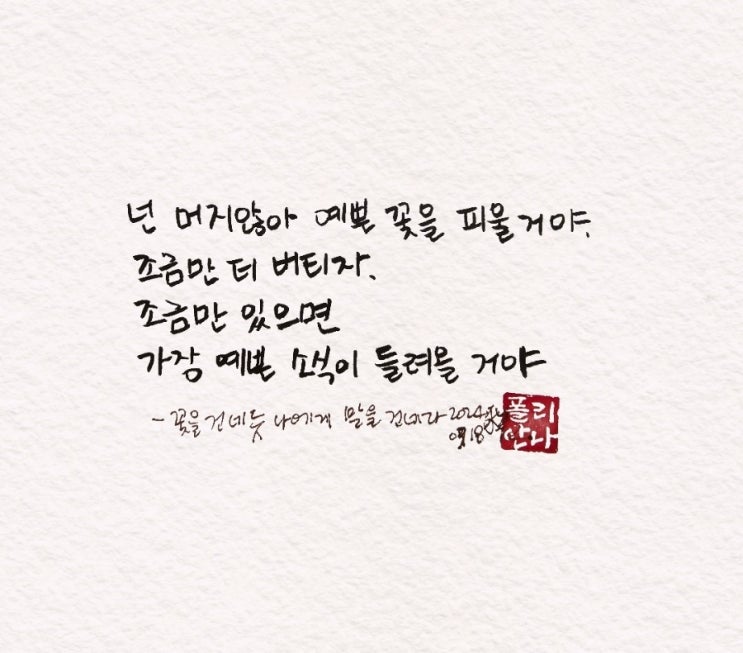 넌 머지않아 예쁜 꽃을 피울거야.
조금만 더 버티자.
조금만 있으면
가장 예쁜 소식이 들려올 거야
- 꽃을 건네듯 나에게 말을 건네라 2024
18
폴리
안나